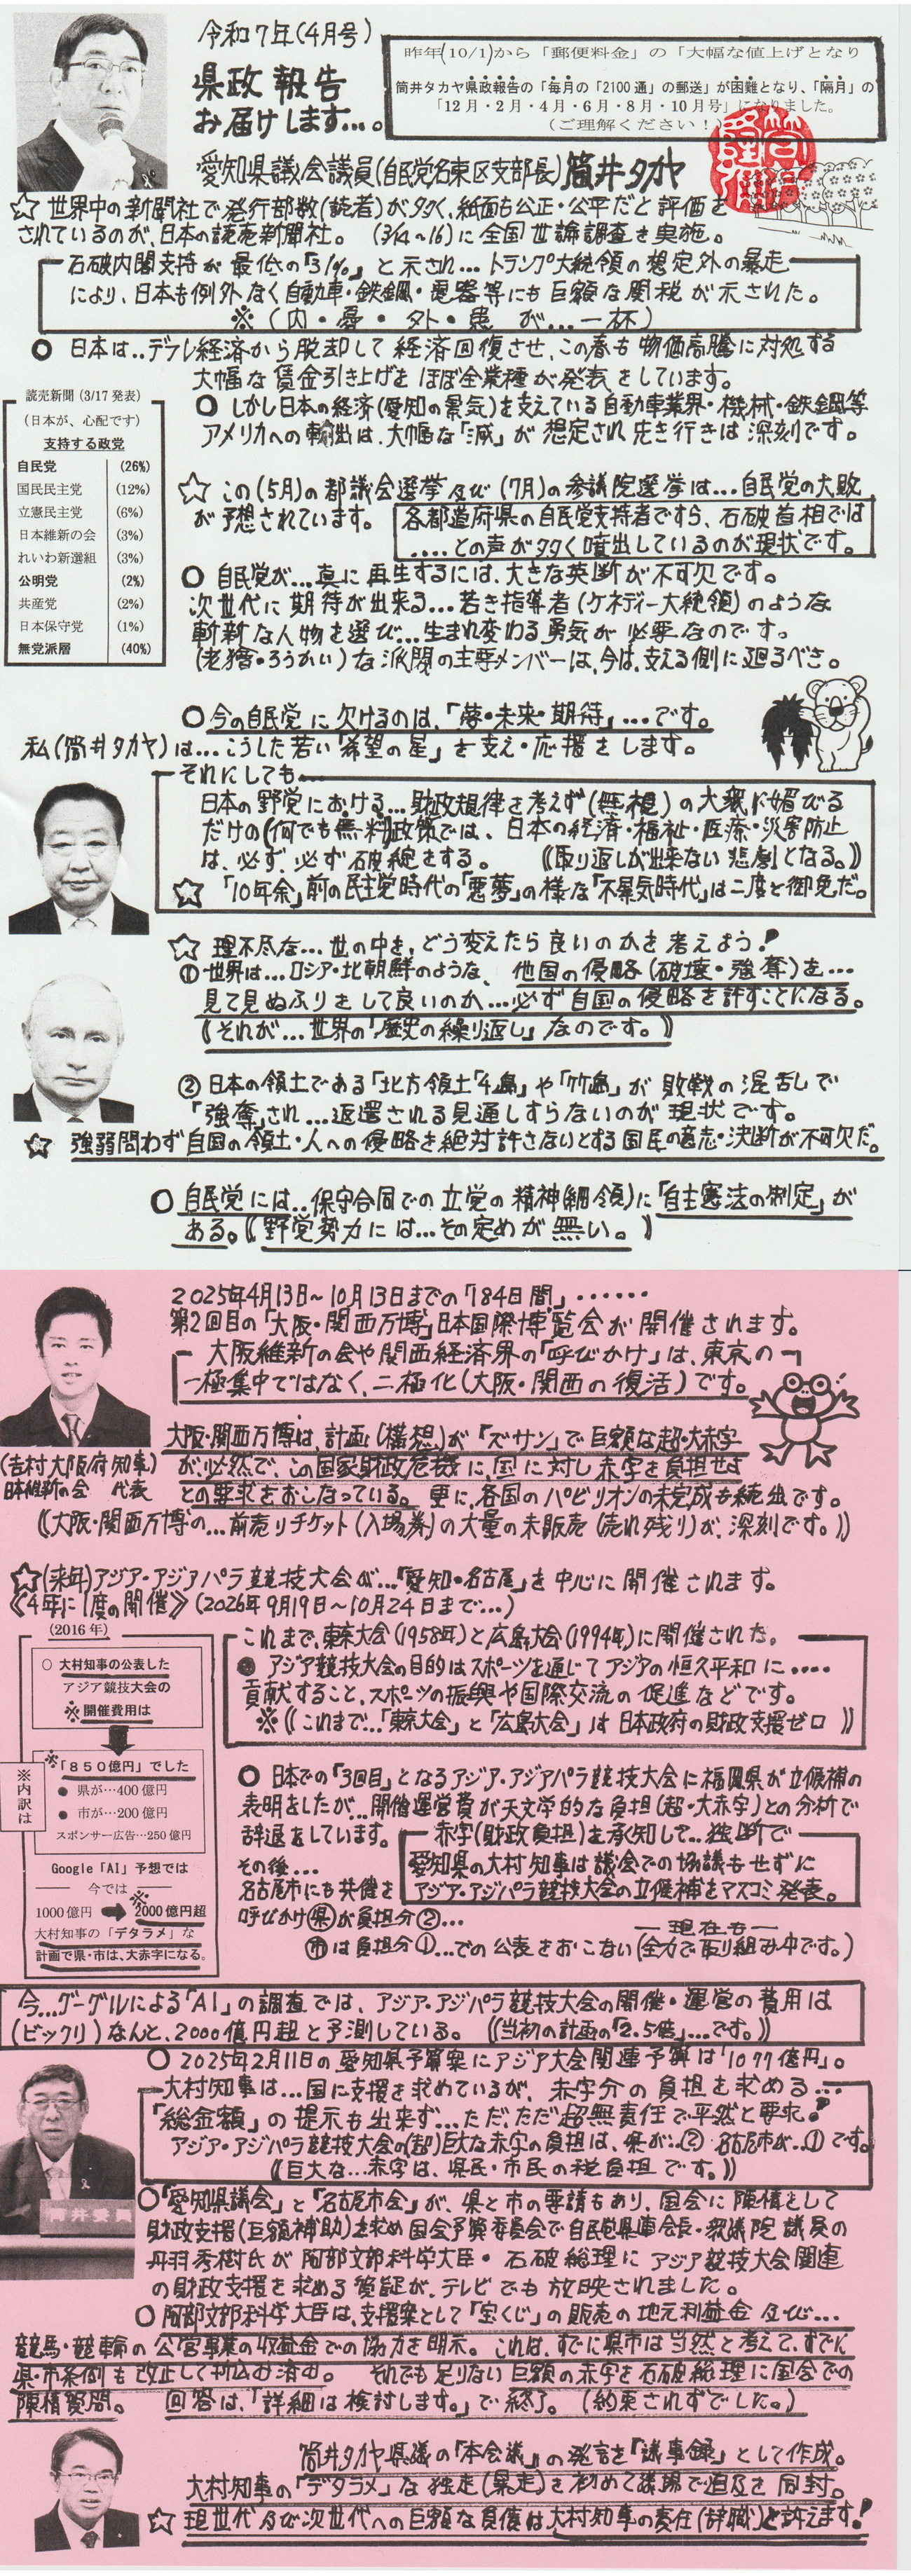 令和7年(4月号)
県政報告
お届けします…。
昨年(10/1)から「郵便料金」の「大幅な値上げとなり
筒井タカヤ県政報告の「毎月の「2100通」の郵送」が困難となり、「隔月」の
「12月・2月・4月・6月・8月・10月号」になりました。
(ご理解ください!)
愛知県議会議員(自民党名東区支部長)筒井タカヤ
☆ 世界中の新聞社で発行部数(読者)が多く、紙面も公正・公平だと評価を
されているのが、日本の読売新聞社。 (3/14~16)に全国世論調査を実施。
石破内閣支持が最低の「31%」と示され…トランプ大統領の想定外の暴走
により、日本も例外なく自動車・鉄鋼・電器等にも巨額な関税が示された。
※(内・憂・外・患 が…一杯)
○ 日本は‥デフレ経済から脱却して経済回復させ、この春も物価高騰に対処する
大幅な賃金引き上げをほぼ全業種が発表をしています。
○ しかし日本の経済(愛知の景気)を支えている自動車業界・機械・鉄鋼等
アメリカへの輸出は、大幅な「減」が想定され先き行きは深刻です。
読売新聞(3/17発表)
(日本が、心配です)
支持する政党
自民党 (26%)
国民民主党 (12%)
立憲民主党 (6%)
日本維新の会 (3%)
れいわ新選組 (3%)
公明党 (2%)
共産党 (2%)
日本保守党 (1%)
無党派層 (40%)
☆ この(5月)の都議会選挙及び(7月)の参議院選挙は…自民党の大敗
が予想されています。
各都道府県の自民党支持者ですら、石破首相では
‥‥との声が多く噴出しているのが現状です。
○ 自民党が…真に再生するには、大きな英断が不可欠です。
次世代に期待が出来る…若き指導者(ケネディー大統領)のような
斬新な人物を選び…生まれ変わる勇気が必要なのです。
(老獪・ろうかい)な派閥の主要メンバーは、今は、支える側に廻るべき。
○ 今の自民党に欠けるのは、「夢・未来・期待」…です。
私(筒井タカヤ)は…こうした若い「希望の星」を支え・応援をします。
それにしても…
日本の野党における…財政規律を考えず(無視)の大衆に媚びる
だけの(何でも無料)政策では、日本の経済・福祉・医療・災害防止
は、必ず、必ず破綻をする。 《取り返しが出来ない悲劇となる。》
☆ 「10年余」前の民主党時代の「悪夢」の様な「不景気時代」は二度と御免だ。
☆ 理不尽な…世の中を、どう変えたら良いのかを考えよう!
① 世界は…ロシア・北朝鮮のような、他国の侵略(破壊・強奪)を…
見て見ぬふりをして良いのか…必ず自国の侵略を許すことになる。
《それが…世界の「歴史の繰り返し」なのです。》
② 日本の領土である「北方領土「4島」や「竹島」が敗戦の混乱で
「強奪」され…返還される見通しすらないのが現状です。
☆ 強弱問わず自国の領土・人への侵略を絶対許さないとする国民の意志・決断が不可欠だ。
○ 自民党には‥保守合同での立党の精神(綱領)に「自主憲法の制定」が
ある。《野党勢力には…その定めが無い。》
2025年4月13日~10月13日までの「184日間」……
第2回目の「大阪・関西万博」日本国際博覧会が開催されます。
大阪維新の会や関西経済界の「呼びかけ」は、東京の
一極集中ではなく、二極化(大阪・関西の復活)です。
(吉村大阪府知事)
日本維新の会 代表
大阪・関西万博は、計画(構想)が『ズサン』で巨額な超・大赤字
が必然で、この国家財政危機に、国に対し赤字を負担せよ
との要求をおこなっている。 更に、各国のパビリオンの未完成も続出です。
《大阪・関西万博の…前売りチケット(入場券)の大量の未販売(売れ残り)が、深刻です。》
☆(来年)アジア・アジアパラ競技大会が…「愛知・名古屋」を中心に開催されます。
《4年に1度の開催》(2026年9月19日~10月24日まで…)
(2016年)
○ 大村知事の公表した
アジア競技大会の
※開催費用は
※「850億円」でした
※内訳は
● 県が…400億円
● 市が…200億円
スポンサー広告…250億円
Google「AI」予想では
今では ※
1000億円 2000億円超
大村知事の「デタラメ」な
計画で県・市は、大赤字になる。
これまで、東京大会(1958年)と広島大会(1994年)に開催された。
● アジア競技大会の目的はスポーツを通じてアジアの恒久平和に‥‥
貢献すること、スポーツの振興や国際交流の促進などです。
※《これまで…「東京大会」と「広島大会」は日本政府の財政支援ゼロ》
○ 日本での「3回目」となるアジア・アジアパラ競技大会に福岡県が立候補の
表明をしたが…開催運営費が天文学的な負担(超・大赤字)との分析で
辞退をしています。
赤字(財政負担)を承知して…独断で
愛知県の大村知事は議会での協議もせずに
アジア・アジパラ競技大会の立候補をマスコミ発表。
その後…
名古屋市にも共催を
呼びかけ県が負担分②…
市は負担分①…での公表をおこない(全力で取り組み中です。)
現在も
今…グーグルによる「AI」の調査では、アジア・アジパラ競技大会の開催・運営の費用は
(ビックリ)なんと、2000億円超と予測している。 《当初の計画の「2.5倍」…です。》
○ 2025年2月11日の愛知県予算案にアジア大会関連予算は「1077億円」。
大村知事は…国に支援を求めているが、赤字分の負担を求める…
「総金額」の提示も出来ず…ただ、ただ超無責任で平然と要求!
アジア・アジパラ競技大会の(超)巨大な赤字の負担は、県が‥② 名古屋市が‥①です。
《巨大な…赤字は、県民・市民の税負担です。》
筒井委員
○「愛知県議会」と「名古屋市会」が、県と市の要請もあり、国会に陳情をして
財政支援(巨額補助)を求め国会予算委員会で自民党県連会長・衆議院議員の
丹羽秀樹氏が阿部文部科学大臣・石破総理にアジア競技大会関連
の財政支援を求める質疑が、テレビでも放映されました。
○ 阿部文部科学大臣は、支援案として「宝くじ」の販売の地元利益金及び…
競馬・競輪の公営事業の収益金での協力を明示。これは、すでに県市は当然と考えて、すでに
県・市条例も改正して折込み済み。 それでも足りない巨額の赤字を石破総理に国会での
陳情質問。 回答は、「詳細は検討します。」で終了。(約束されずでした。)
筒井タカヤ県議の「本会議」の発言を「議事録」として作成。
大村知事の「デタラメ」な独走(暴走)を初めて議場で追及を同封。
☆ 現世代及び次世代への巨額な負債は大村知事の責任(辞職)と訴えます!